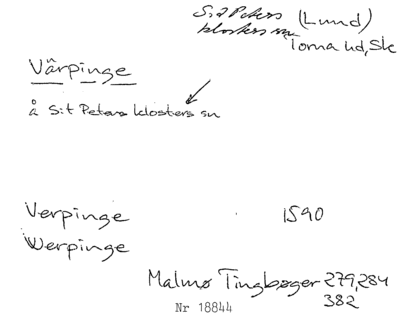 S:t Peters (Lund)
klosters sn
Torna hd, Sk
Värpinge
å S:t Peters klosters sn
Verpinge 1590
Werpinge
Malmø Tingbøger 279,284
382
Nr 18844